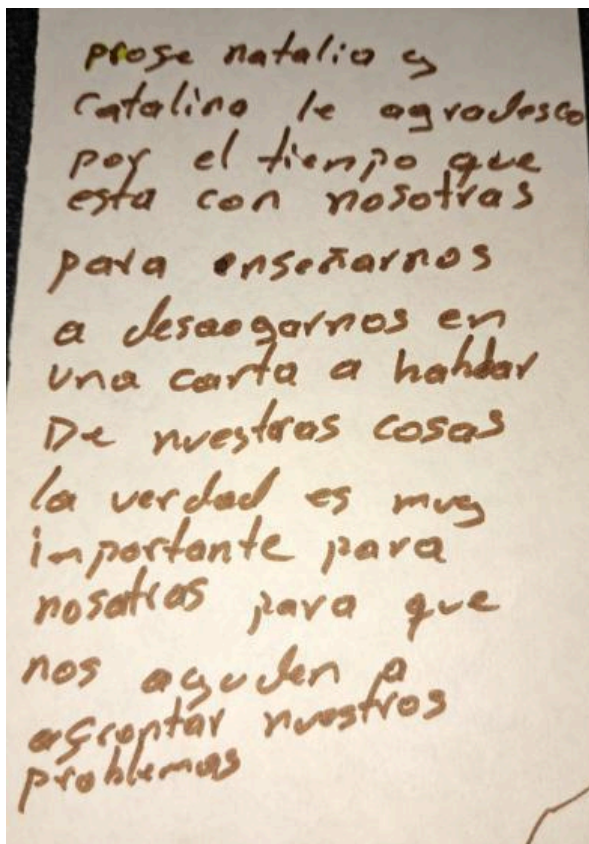 profe natalia y
Catalina le agradesco
por el tienpo que
esta con nosotras
para enseñarnos
a desaogarnos en
una carta a hablar
De nuestras cosas
la verdad es muy
importante para
nosotras para que
nos ayuden a
afrontar nuestros
problemas